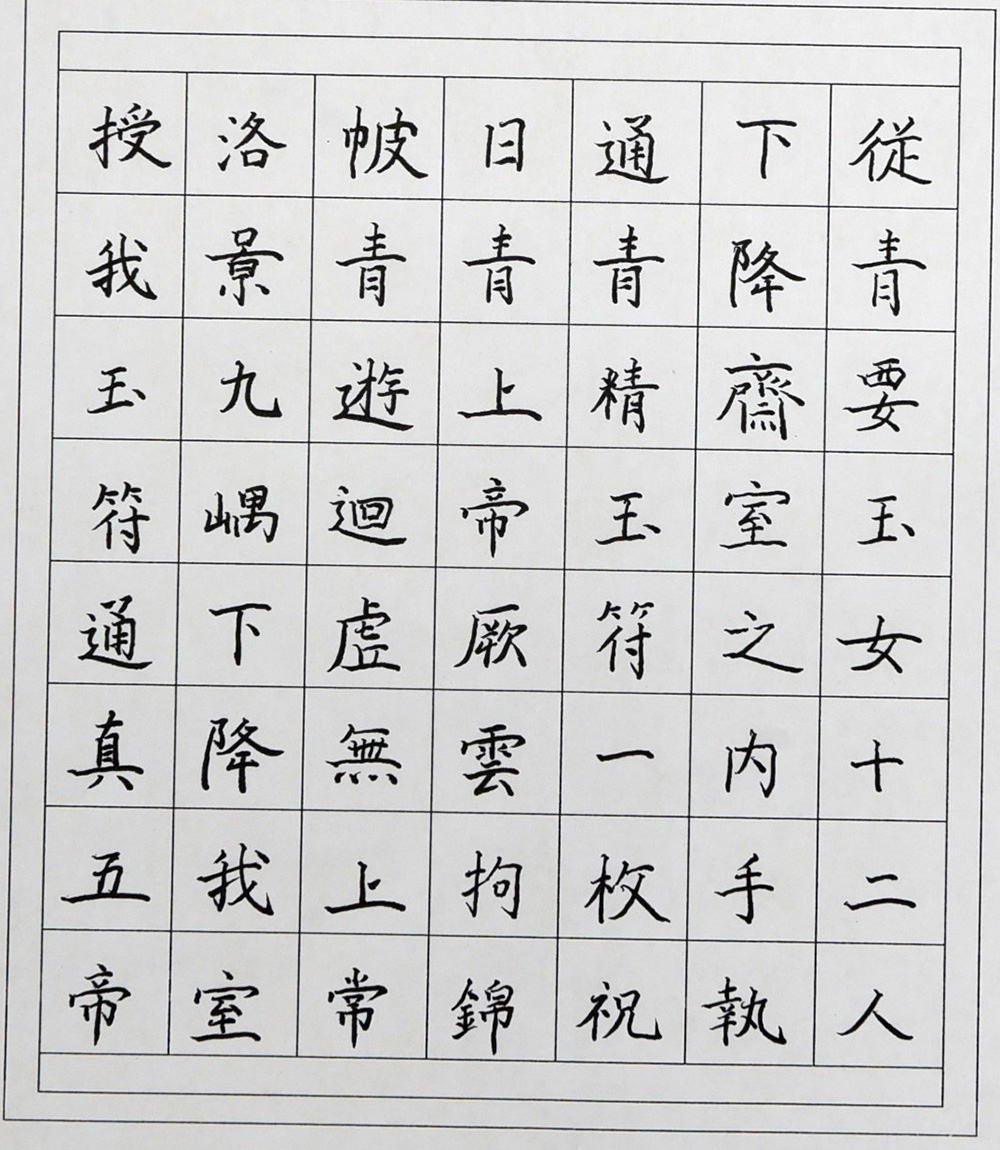 從青要玉女十二人
下降齋室之内手執
通青精玉符一枚祝
日青上帝厥雲拘錦
帔青遊迴虛無上常
洛景九嵎下降我室
授我玉符通真五帝